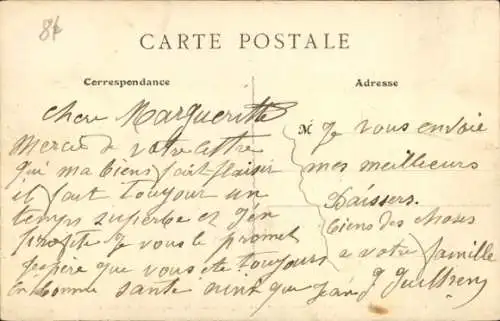 84
CARTE POSTALE
Correspondance
Adresse
chere Margueritte
Mercie de votre lettre
qui ma biens fait plaisir
il fait toujour un
temps superbe et j'en
profite Je vous le promet
J'espère que vous ete toujours
en bonne sante ainsi que Jean
M Je vous envoie
mes meilleurs
Baissers.
biens des choses
a votre famille